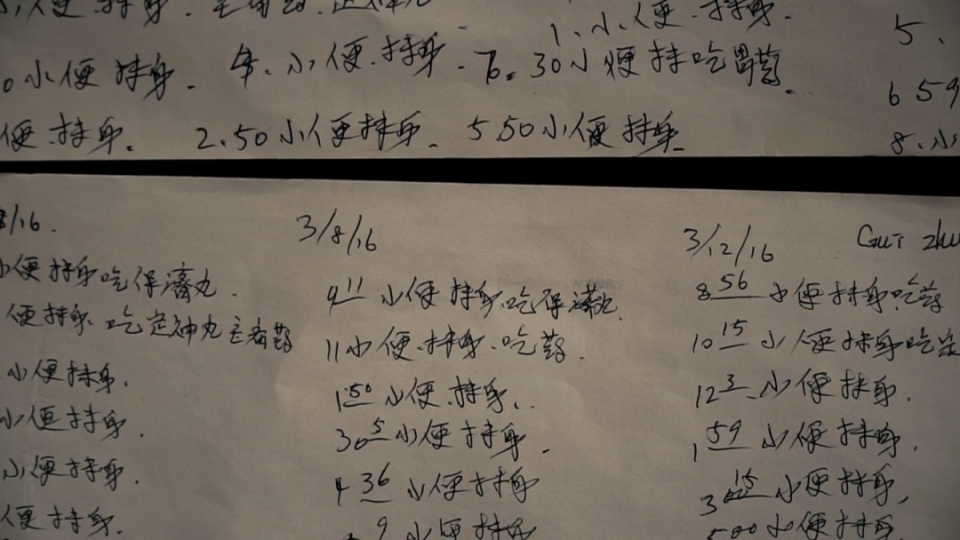 小便抹身.
1、小便.抹身.
5、
0小便抹身.
4、小便.抹身.
7.30小便抹吃胃药.
6 59
便.抹身.
2.50小便抹身.
5 50小便抹身.
8、小
/16.
小便抹身吃保济丸.
便抹身、吃定神丸
小便抹身.
小便抹身.
小便抹身.
便抹身.
3/8/16
9 11 小便抹身.吃保济丸.
11小便.抹身.吃药.
1 50 小便.抹身、
3 5 小便抹身.
4 36 小便抹身
9 小便抹身
3/12/16
Gui zhu
8 56 小便抹身.吃药
10 15 小便抹身吃
12 3 小便抹身.
1 59 小便抹身.
3 15 小便抹身,
5 00 小便抹身.